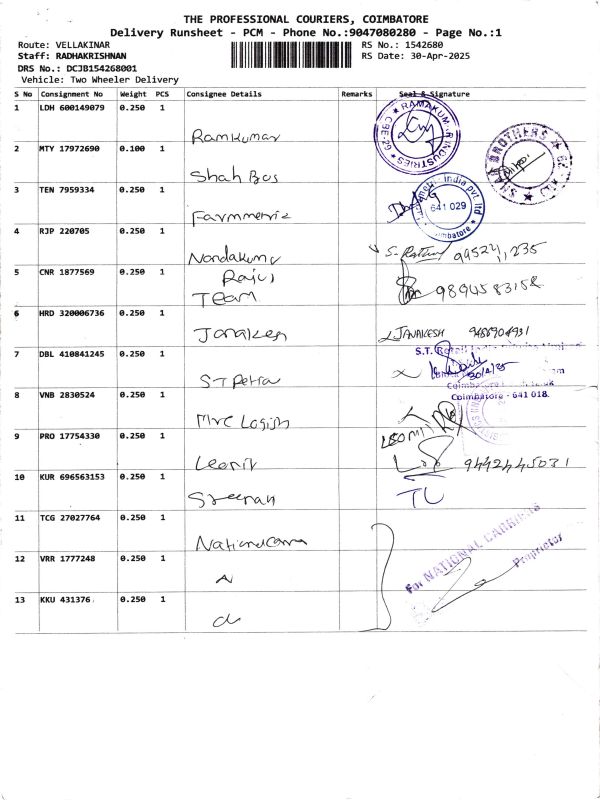 THE PROFESSIONAL COURIERS, COIMBATORE
Delivery Runsheet - PCM - Phone No.:9047080280 - Page No.:1
Route: VELLAKINAR
Staff: RADHAKRISHNAN
DRS No.: DCJB154268001
Vehicle: Two Wheeler Delivery
RS No.: 1542680
RS Date: 30-Apr-2025
S No Consignment No Weight PCS Consignee Details Remarks Seal & Signature
1 LDH 600149079 0.250 1 Ramkumar
RAMAKUMAR INDUSTRIES CBE-29
2 MTY 17972690 0.100 1 Shah Bros
SHAH BROTHERS
3 TEN 7959334 0.250 1 Farmmetriz
india pvt ltd
641 029
Coimbatore
4 RJP 220705 0.250 1 Nandakumr
5 CNR 1877569 0.250 1 Raju
Team
9894583158
6 HRD 320006736 0.250 1 Janakesh
JANAKESH
7 DBL 410841245 0.250 1 ST Petra
S.T.
30/4/25
Coimbatore - 641 018.
8 VNB 2830524 0.250 1 Mrc Logism
9 PRO 17754330 0.250 1 Leonix
9442445031
10 KUR 696563153 0.250 1 Sreerah
11 TCG 27027764 0.250 1 National Carra
For NATIONAL CARRIERS
Proprietor
12 VRR 1777248 0.250 1
13 KKU 431376 0.250 1